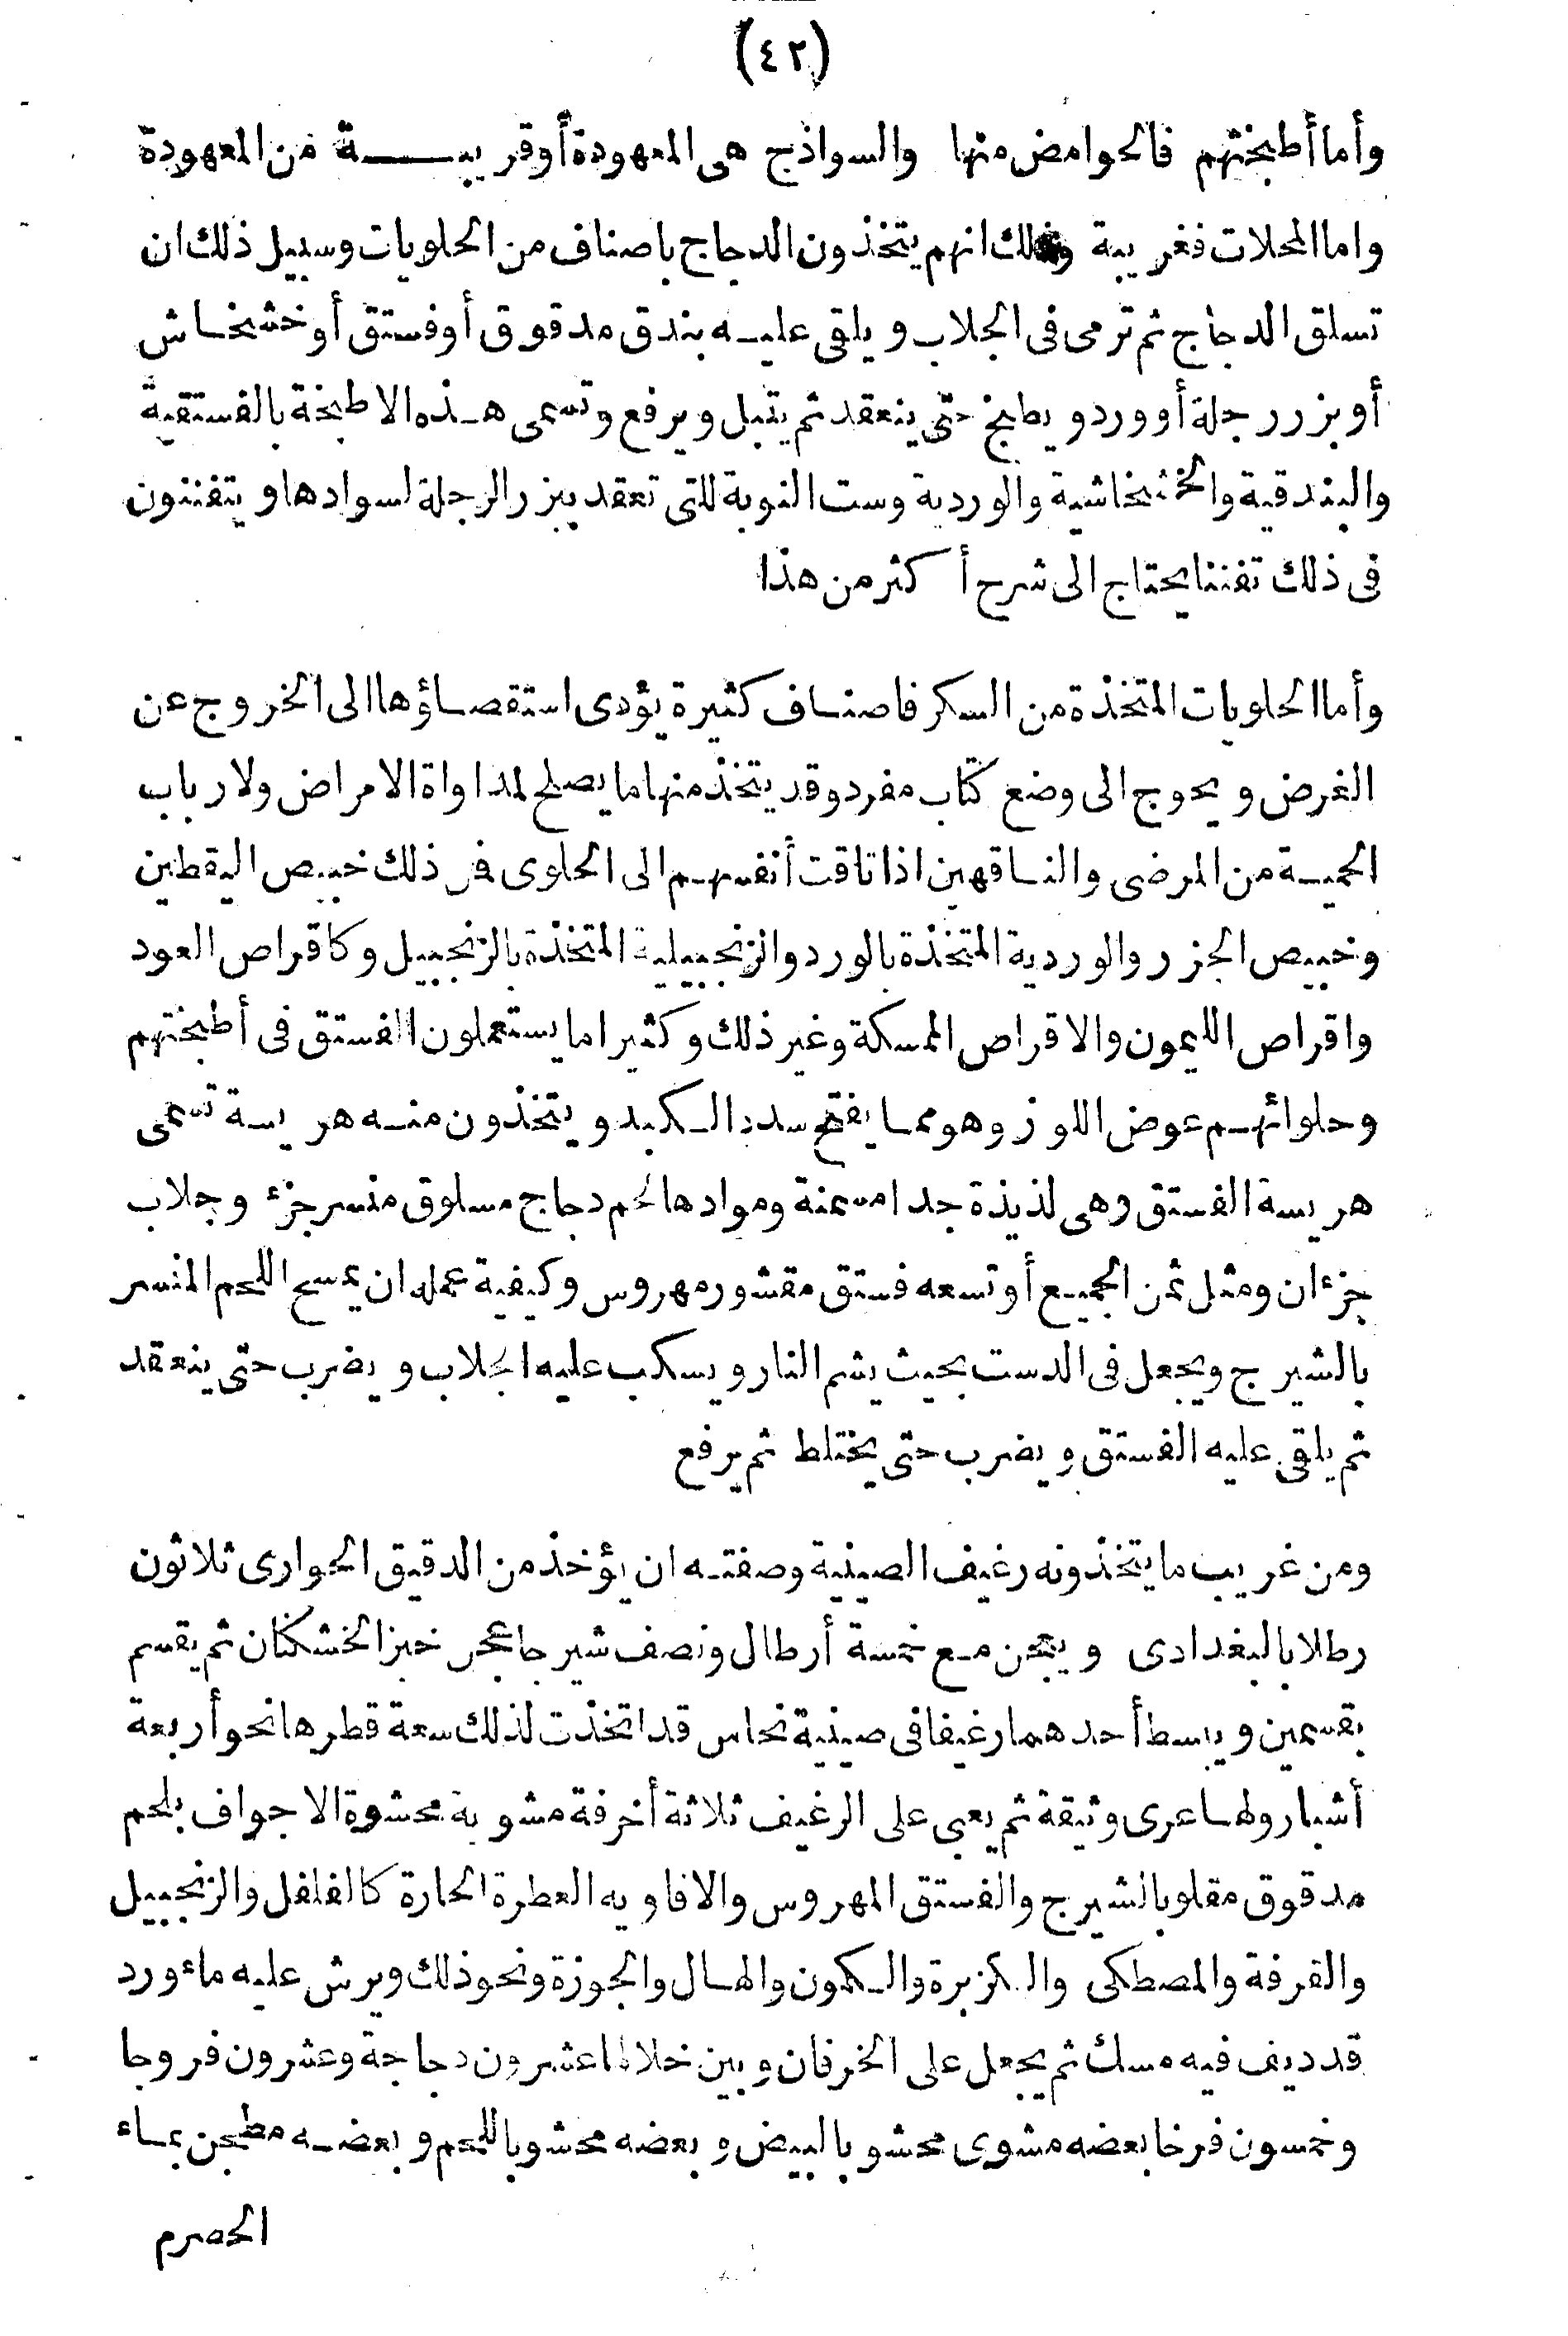 (٤٢)
وأما أطبختهم فالحوامض منها والسواذج هى المعهودة أو قريبة من المعهودة
واما المحلات فغريبة وذلك انهم يتخذون الدجاج باصناف من الحلويات وسبيل ذلك ان
تسلق الدجاج ثم ترمى فى الجلاب ويلقى عليه بندق مدقوق أو فستق أو خشخاش
أو بزر رجلة أو ورد ويطبخ حتى ينعقد ثم يتبل ويرفع وتسمى هذه الاطبخة بالفستقية
والبندقية والخشخاشية والوردية وست النوبة للتى تعقد ببزر الرجلة لسوادها ويتفننون
فى ذلك تفننا يحتاج الى شرح أكثر من هذا
وأما الحلويات المتخذة من السكر فاصناف كثيرة يؤدى استقصاؤها الى الخروج عن
الغرض ويحوج الى وضع كتاب مفرد وقد يتخذ منها ما يصلح لمداواة الامراض ولارباب
الحمية من المرضى والناقهين اذا تاقت أنفسهم الى الحلوى فمن ذلك خبيص اليقطين
وخبيص الجزر والوردية المتخذة بالورد والزنجبيلية المتخذة بالزنجبيل وكاقراص العود
واقراص الليمون والاقراص الممسكة وغير ذلك وكثيرا ما يستعملون الفستق فى أطبختهم
وحلوائهم عوض اللوز وهو مما يفتح سدد الكبد ويتخذون منه هريسة تسمى
هريسة الفستق وهى لذيذة جدا مسمنة وموادها لحم دجاج مسلوق منسر جزء وجلاب
جزءان ومثل ثمن الجميع أو تسعه فستق مقشور مهروس وكيفية عمله ان يمسح اللحم المنسر
بالشيرج ويجعل فى الدست بحيث يشم النار ويسكب عليه الجلاب ويضرب حتى ينعقد
ثم يلقى عليه الفستق ويضرب حتى يختلط ثم يرفع
ومن غريب ما يتخذونه رغيف الصينية وصفته ان يؤخذ من الدقيق الحوارى ثلاثون
رطلا بالبغدادى ويعجن مع خمسة أرطال ونصف شيرجا عجن خبز الخشكنان ثم يقسم
بقسمين ويبسط أحدهما رغيفا فى صينية نحاس قد اتخذت لذلك سعة قطرها نحو أربعة
أشبار ولها عرى وثيقة ثم يعبى على الرغيف ثلاثة أخرفة مشوية محشوة الاجواف بلحم
مدقوق مقلو بالشيرج والفستق المهروس والافاويه العطرة الحارة كالفلفل والزنجبيل
والقرفة والمصطكى والكزبرة والكمون والهال والجوزة ونحو ذلك ويرش عليه ماء ورد
قد ديف فيه مسك ثم يجعل على الخرفان وبين خلالها عشرون دجاجة وعشرون فروجا
وخمسون فرخا بعضه مشوى محشو بالبيض وبعضه محشو باللحم وبعضه مطجن بماء
الحصرم